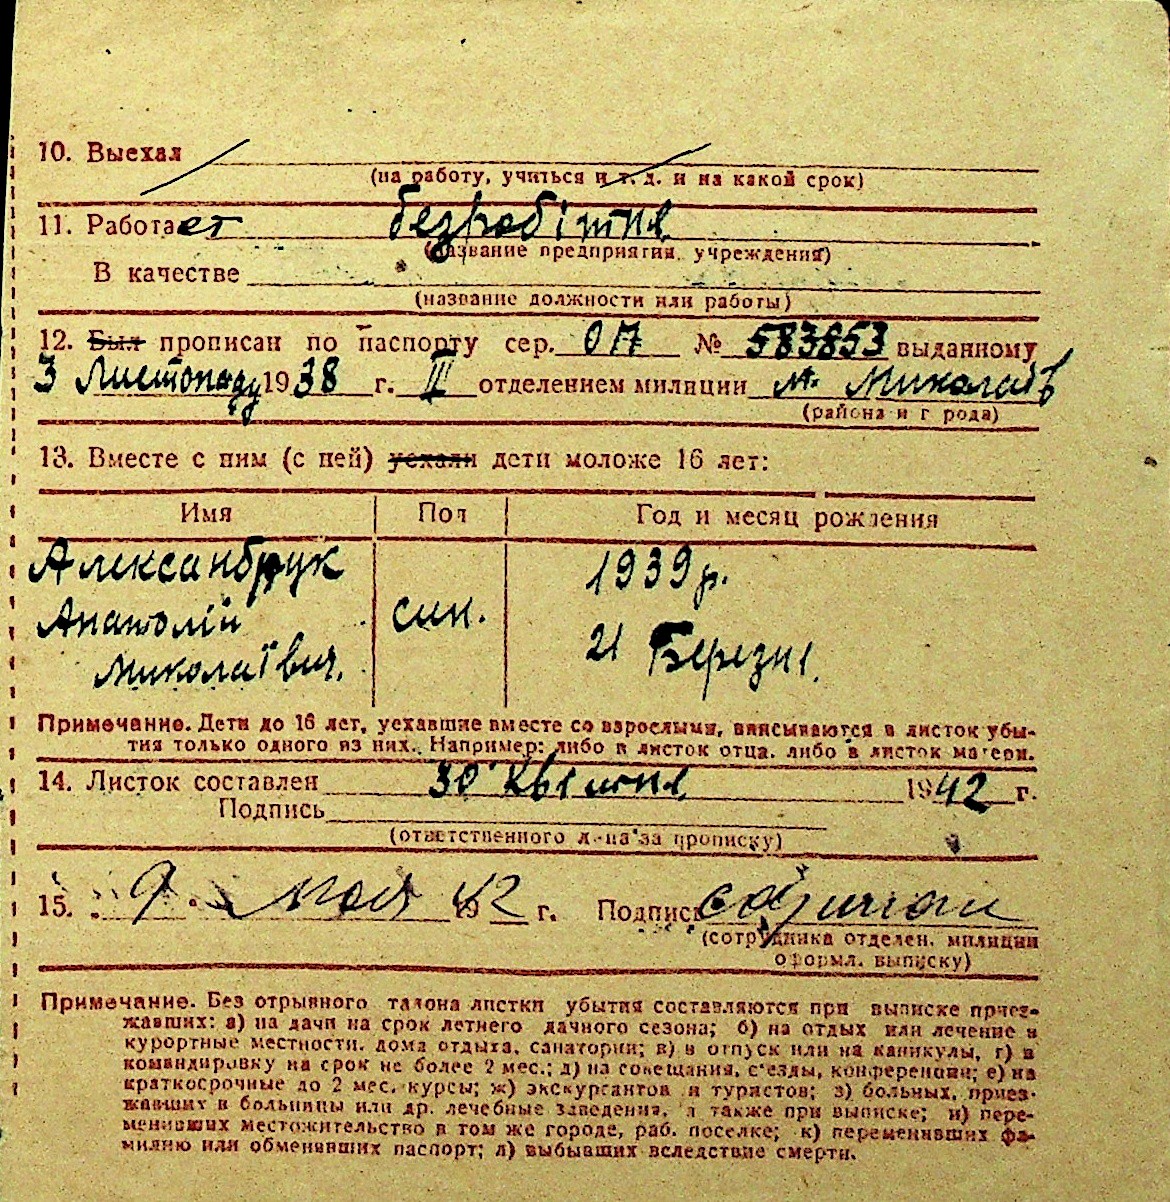 10. Выехал
(на работу, учиться и т. д. и на какой срок)
11. Работает безробітня
(название предприятия, учреждения)
В качестве
(название должности или работы)
12. Был прописан по паспорту сер. ОП № 583853 выданному
3 Листопаду 1938 г. III отделением милиции м. Миколаїв
(района и города)
13. Вместе с ним (с ней) уехали дети моложе 16 лет:
Имя Пол Год и месяц рождения
Александрук 1939 р.
Анатолій син. 21 Березня.
Миколаївич.
Примечание. Дети до 16 лет, уехавшие вместе со взрослыми, вписываются в листок убы-
тия только одного из них. Например: либо в листок отца, либо в листок матери.
14. Листок составлен 30 Квітня 1942 г.
Подпись
(ответственного л-ца за прописку)
15. 9 мая 42 г. Подпись
(сотрудника отделен. милиции
оформл. выписку)
Примечание. Без отрывного талона листки убытия составляются при выписке приез-
жавших: а) на дачи на срок летнего дачного сезона; б) на отдых или лечение в
курортные местности, дома отдыха, санатории; в) в отпуск или на каникулы, г) в
командировку на срок не более 2 мес.; д) на совещания, с'езды, конференции; е) на
краткосрочные до 2 мес. курсы; ж) экскурсантов и туристов; з) больных, приез-
жавших в больницы или др. лечебные заведения, а также при выписке; и) пере-
менивших местожительство в том же городе, раб. поселке; к) переменивших фа-
милию или обменявших паспорт; л) выбывших вследствие смерти.